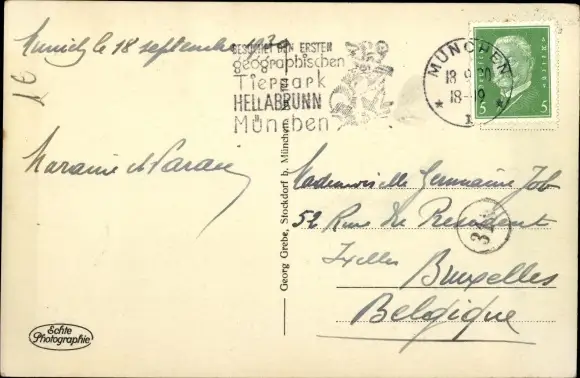 Munich le 18 septembre 1930
BESUCHET DEN ERSTEN
geographischen
Tierpark
HELLABRUNN
München
MÜNCHEN
18.9.30
18-19
* 1 *
5 5
16
Mademoiselle Germaine Job
52 Rue Du Président
Ixelles
Bruxelles
Belgique
31
Georg Grebe, Stockdorf b. München
Echte
Photographie